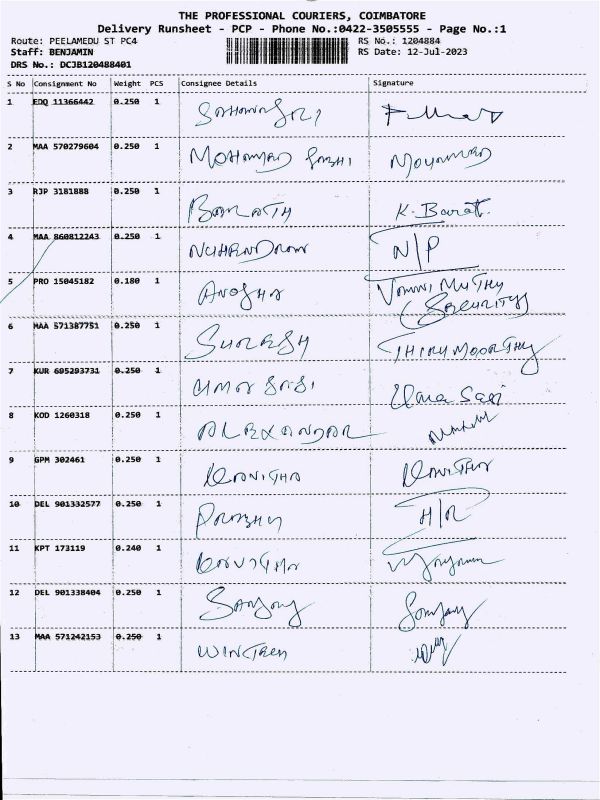 THE PROFESSIONAL COURIERS, COIMBATORE
Delivery Runsheet - PCP - Phone No.:0422-3505555 - Page No.:1
Route: PEELAMEDU ST PC4 RS No.: 1204884
Staff: BENJAMIN RS Date: 12-Jul-2023
DRS No.: DCJB120488401
S No Consignment No Weight PCS Consignee Details Signature
1 EDQ 11366442 0.250 1
2 MAA 570279604 0.250 1 MOHAMMAD Mohammad
3 RJP 3181888 0.250 1 BARATH K. Barat.
4 MAA 860812243 0.250 1 N/P
5 PRO 15045182 0.180 1 ANOSHA
(SECURITY)
6 MAA 571387751 0.250 1 SURESH THIRUMOORTHY
7 KUR 695293731 0.250 1 UMA SASI Uma Sasi
8 KOD 1260318 0.250 1 ALEXANDAR
9 GPM 302461 0.250 1 KAVITHA KAVITHA
10 DEL 901332577 0.250 1 PRABHU H/R
11 KPT 173119 0.240 1 KAVITHA
12 DEL 901338404 0.250 1 SANJAY Sanjay
13 MAA 571242153 0.250 1